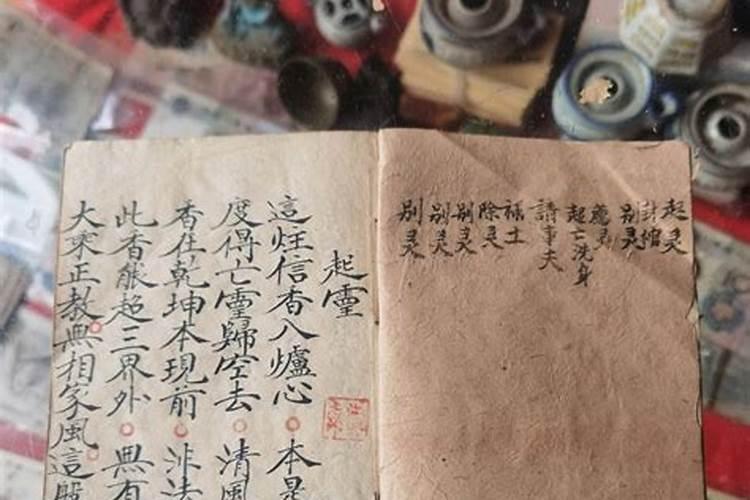 起灵
封棺
别灵
起亡洗身
請事夫
禳土
除灵
别灵
别灵
别灵
起靈
這炷信香入爐心 本是
度得亡靈歸空去 清風
香在乾坤本現前 非法
此香能超三界外 無有
大乘正教無相家風這般